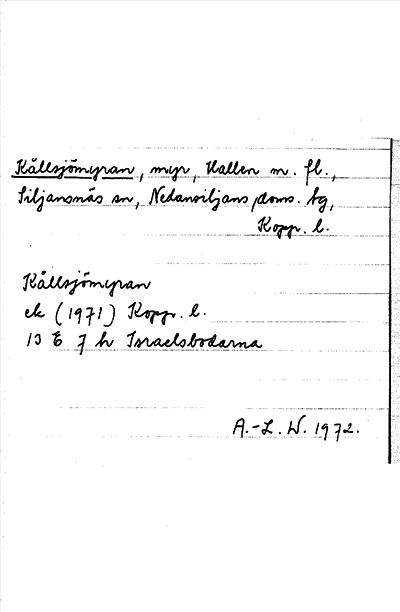 Kållsjömyran, myr, Hallen m. fl.,
Siljansnäs sn, Nedansiljans doms. tg,
Kopp. l.
Kållsjömyran
ek (1971) Kopp. l.
13 E 7 h Israelsbodarna
A.-L. W. 1972.